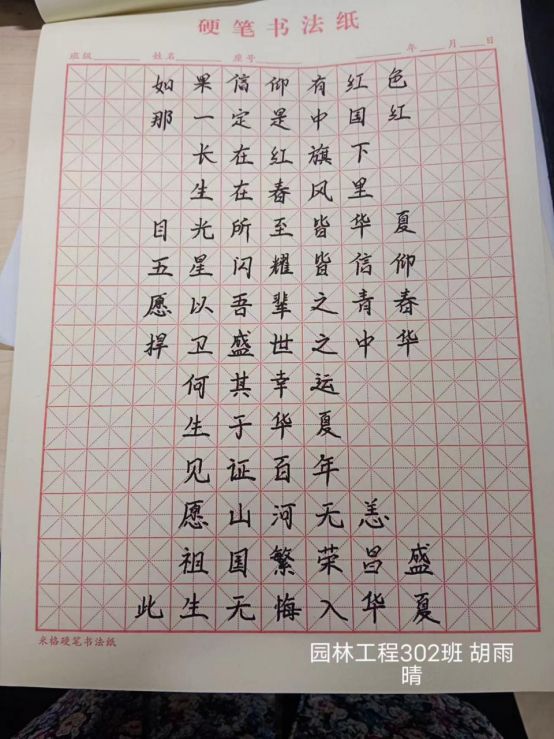 硬笔书法纸
班级 姓名 座号 年 月 日
如果信仰有红色
那一定是中国红
长在红旗下
生在春风里
目光所至皆华夏
五星闪耀皆信仰
愿以吾辈之青春
捍卫盛世之中华
何其幸运
生于华夏
见证百年
愿山河无恙
祖国繁荣昌盛
此生无悔入华夏
米格硬笔书法纸
园林工程302班 胡雨
晴